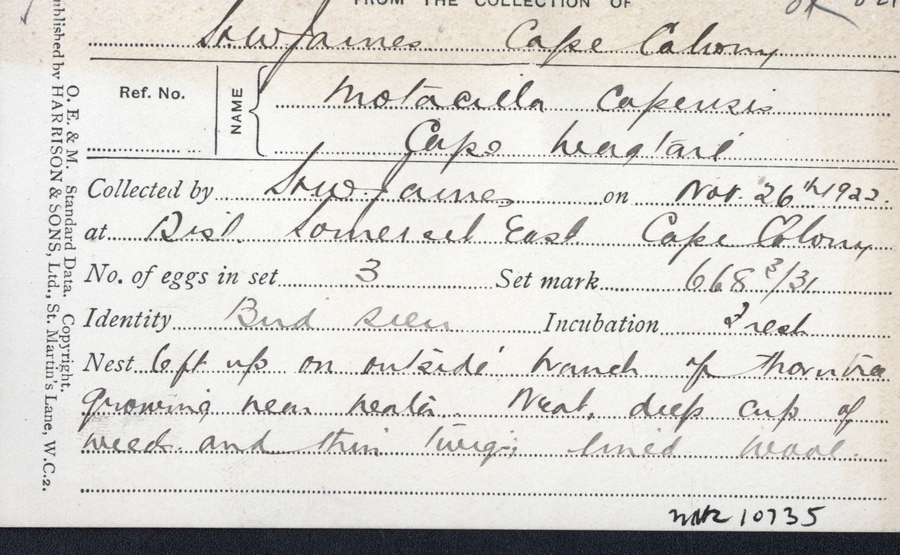 FROM THE COLLECTION OF
Cape Colony
Ref. No.
NAME
Motacilla capensis
Cape Wagtail
Collected by on Nov. 26th 1922.
at Dist. Somerset East Cape Colony
No. of eggs in set 3 Set mark 668 3/31
Identity Bird seen Incubation Fresh
Nest 6ft up on outside branch of thorntree
growing near water. Neat, deep cup of
weeds and thin twigs, lined wool.
NNR 10735
O. E. & M. Standard Data. Copyright.
Published by HARRISON & SONS, Ltd., St. Martin's Lane, W.C.2.